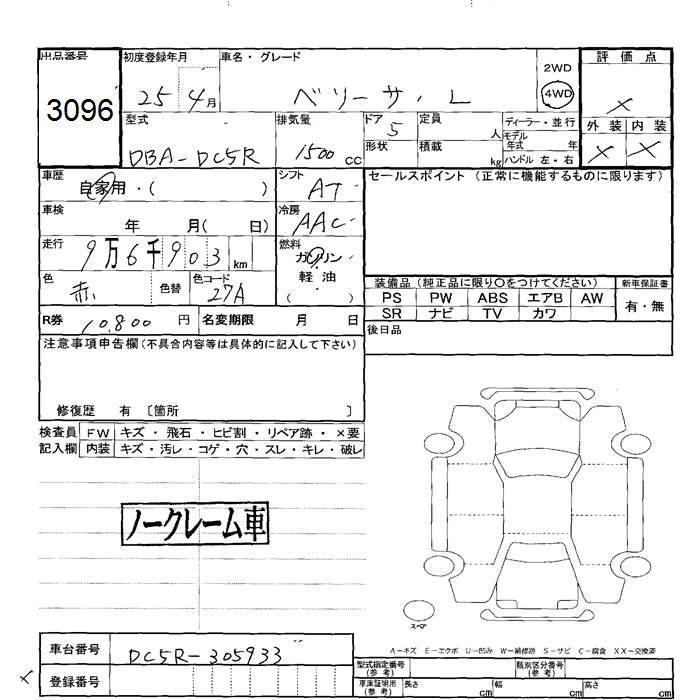 出品番号 初度登録年月 車名・グレード 2WD 評価点
3096 25 4月 ベリーサ、L 4WD ×
型式 排気量 ドア 5 定員 人 ディーラー・並行 外装 内装
DBA-DC5R 1500 cc 形状 積載 kg モデル年式 年 ハンドル 左・右 × ×
車歴 自家用・( ) シフト AT セールスポイント (正常に機能するものに限ります)
車検 年 月( 日) 冷房 AAC
走行 9万6千903 km 燃料 ガソリン・軽油・( )
色 赤 色替 色コード 27A 装備品 (純正品に限り○をつけてください) 新車保証書
PS PW ABS エアB AW 有・無
R券 10,800 円 名変期限 月 日 SR ナビ TV カワ
後日品
注意事項申告欄(不具合内容等は具体的に記入して下さい)
修復歴 有 〔箇所 〕
検査員 FW キズ・飛石・ヒビ割・リペア跡・×要
記入欄 内装 キズ・汚レ・コゲ・穴・スレ・キレ・破レ
ノークレーム車
スペア
A-キズ E-エクボ U-凹み W-補修跡 S-サビ C-腐食 XX-交換済
車台番号 DC5R-305933 型式指定番号(参考) 類別区分番号(参考)
× 登録番号 車庫証明用(参考) 長さ cm 幅 cm 高さ cm